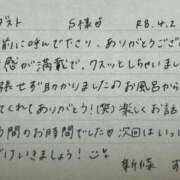 ゲスト S様 R8.4.2
前に呼んで下さり、ありがとうござい
感が満載で、クスッとしちゃいまし
張せず助かりましたお風呂から
てくれてありがとう!(笑)楽しくお話
の間のお時間でした 次回はいっ
でけいきましょう!
新様